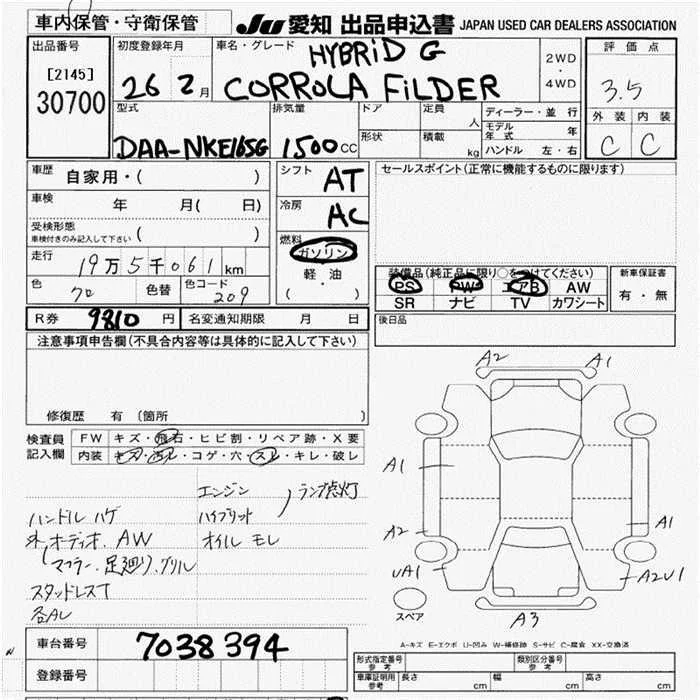 車内保管・守衛保管
JU 愛知 出品申込書 JAPAN USED CAR DEALERS ASSOCIATION
出品番号
[2145]
30700
初度登録年月
26 2月
車名・グレード
HYBRiD G
CORROLA FiLDER
2WD
・
4WD
評価点
3.5
外装 内装
C C
型式
DAA-NKE165G
排気量
1500cc
ドア
形状
定員
人
積載
kg
ディーラー・並行
モデル年式 年
ハンドル 左・右
車歴 自家用・( )
車検 年 月( 日)
受検形態
車検付きのみ記入して下さい ( )
走行 19万5千061km
色 クロ 色替 色コード 209
シフト AT
冷房 AC
燃料
ガソリン
軽・油
( ・ )
セールスポイント(正常に機能するものに限ります)
装備品(純正品に限り○をつけてください)
PS PW エアB AW
SR ナビ TV カワシート
新車保証書
有・無
後日品
R券 9810円 名変通知期限 月 日
注意事項申告欄(不具合内容等は具体的に記入して下さい)
修復歴 有 (箇所 )
検査員
記入欄
FW キズ・飛石・ヒビ割・リペア跡・X要
内装 キズ・汚レ・コゲ・穴・スレ・キレ・破レ
ハンドル ハゲ
オーディオ. AW
マフラー. 足廻り. グリル
スタッドレスT
各AL
エンジン
ハイブリット
ランプ点灯
オイル モレ
A2 A1
A1
A2
UA1
A1
A2U1
A3
スペア
A-キズ E-エクボ U-凹み W-補修跡 S-サビ C-腐食 XX-交換済
車台番号 7038394
登録番号
形式指定番号
参考
類別区分番号
参考
車庫証明用
参考
長さ cm 幅 cm 高さ cm